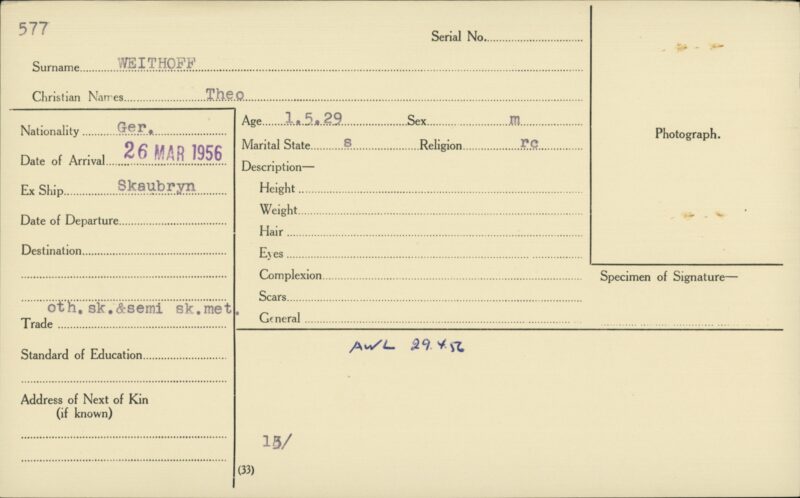 577
Serial No.
Surname WEITHOFF
Christian Names Theo
Nationality Ger.
Date of Arrival 26 MAR 1956
Ex Ship Skaubryn
Date of Departure
Destination
oth. sk.&semi sk.met.
Trade
Standard of Education
Address of Next of Kin
(if known)
Age 1.5.29 Sex m
Marital State s Religion rc
Description—
Height
Weight
Hair
Eyes
Complexion
Scars
General
Photograph.
Specimen of Signature—
AWL 29.4.56
(33)